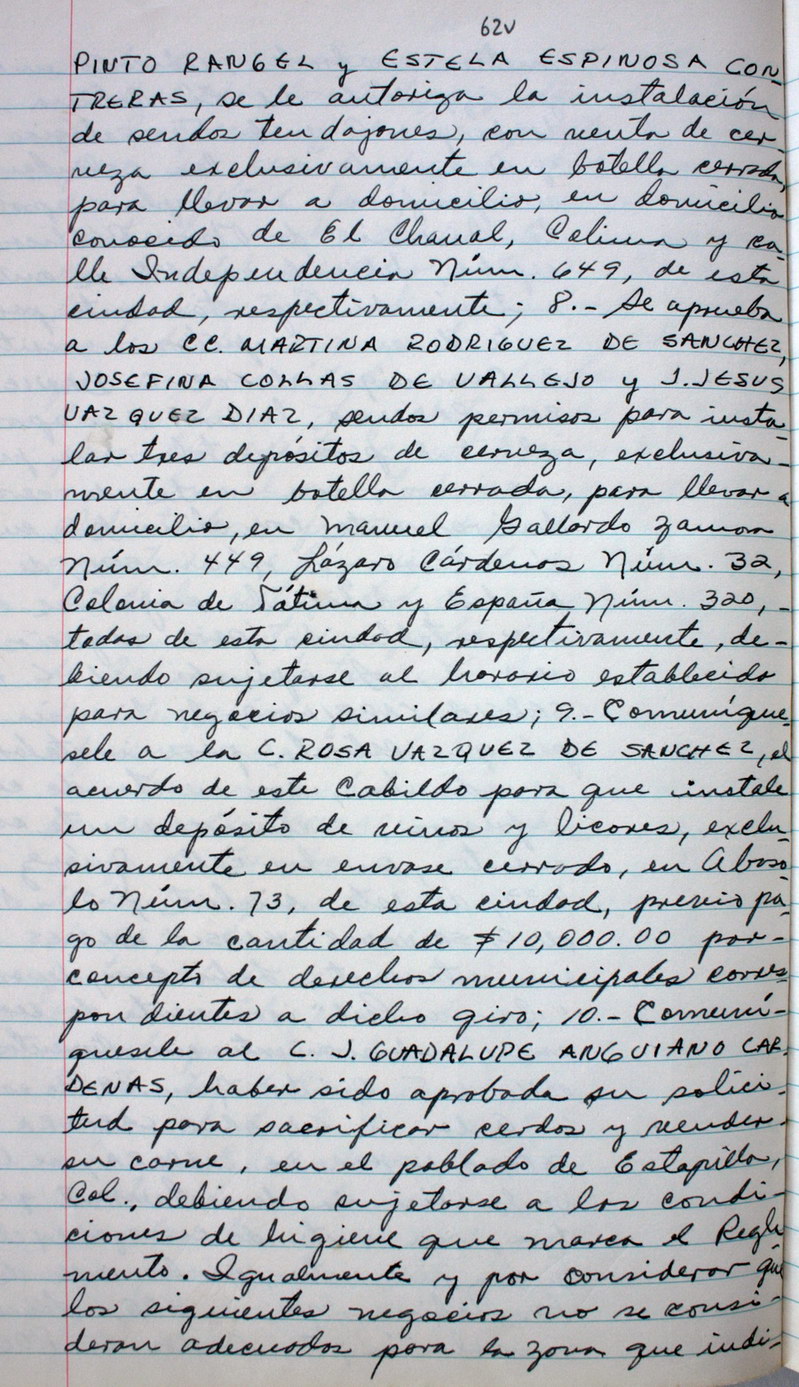 62v
PINTO RANGEL y ESTELA ESPINOSA CON-
TRERAS, se le autoriza la instalación
de sendos tendajones, con venta de cer-
veza exclusivamente en botella cerrada,
para llevar a domicilio, en domicilio
conocido de El Chanal, Colima y ca-
lle Independencia Núm. 649, de esta
ciudad, respectivamente; 8.- Se aprueba
a los CC. MARTINA RODRIGUEZ DE SANCHEZ,
JOSEFINA COLLAS DE VALLEJO y J. JESUS
VAZQUEZ DIAZ, sendos permisos para insta-
lar tres depósitos de cerveza, exclusiva-
mente en botella cerrada, para llevar a
domicilio, en Manuel Gallardo Zamora
Núm. 449, Lázaro Cárdenas Núm. 32,
Colonia de Fátima y España Núm. 320,-
todas de esta ciudad, respectivamente, de-
biendo sujetarse al horario establecido
para negocios similares; 9.- Comuníque-
sele a la C. ROSA VAZQUEZ DE SANCHEZ, el
acuerdo de este Cabildo para que instale
un depósito de vinos y licores, exclu-
sivamente en envase cerrado, en Abaso-
lo Núm. 73, de esta ciudad, previo pa-
go de la cantidad de $10,000.00 por-
concepto de derechos municipales corres-
pondientes a dicho giro; 10.- Comuní-
quesele al C. J. GUADALUPE ANGUIANO CAR-
DENAS, haber sido aprobada su solici-
tud para sacrificar cerdos y vender-
su carne, en el poblado de Estapilla,
Col., debiendo sujetarse a las condi-
ciones de higiene que marca el Regla
mento. Igualmente y por considerar que
los siguientes negocios no se consi-
deran adecuados para la zona que indi-